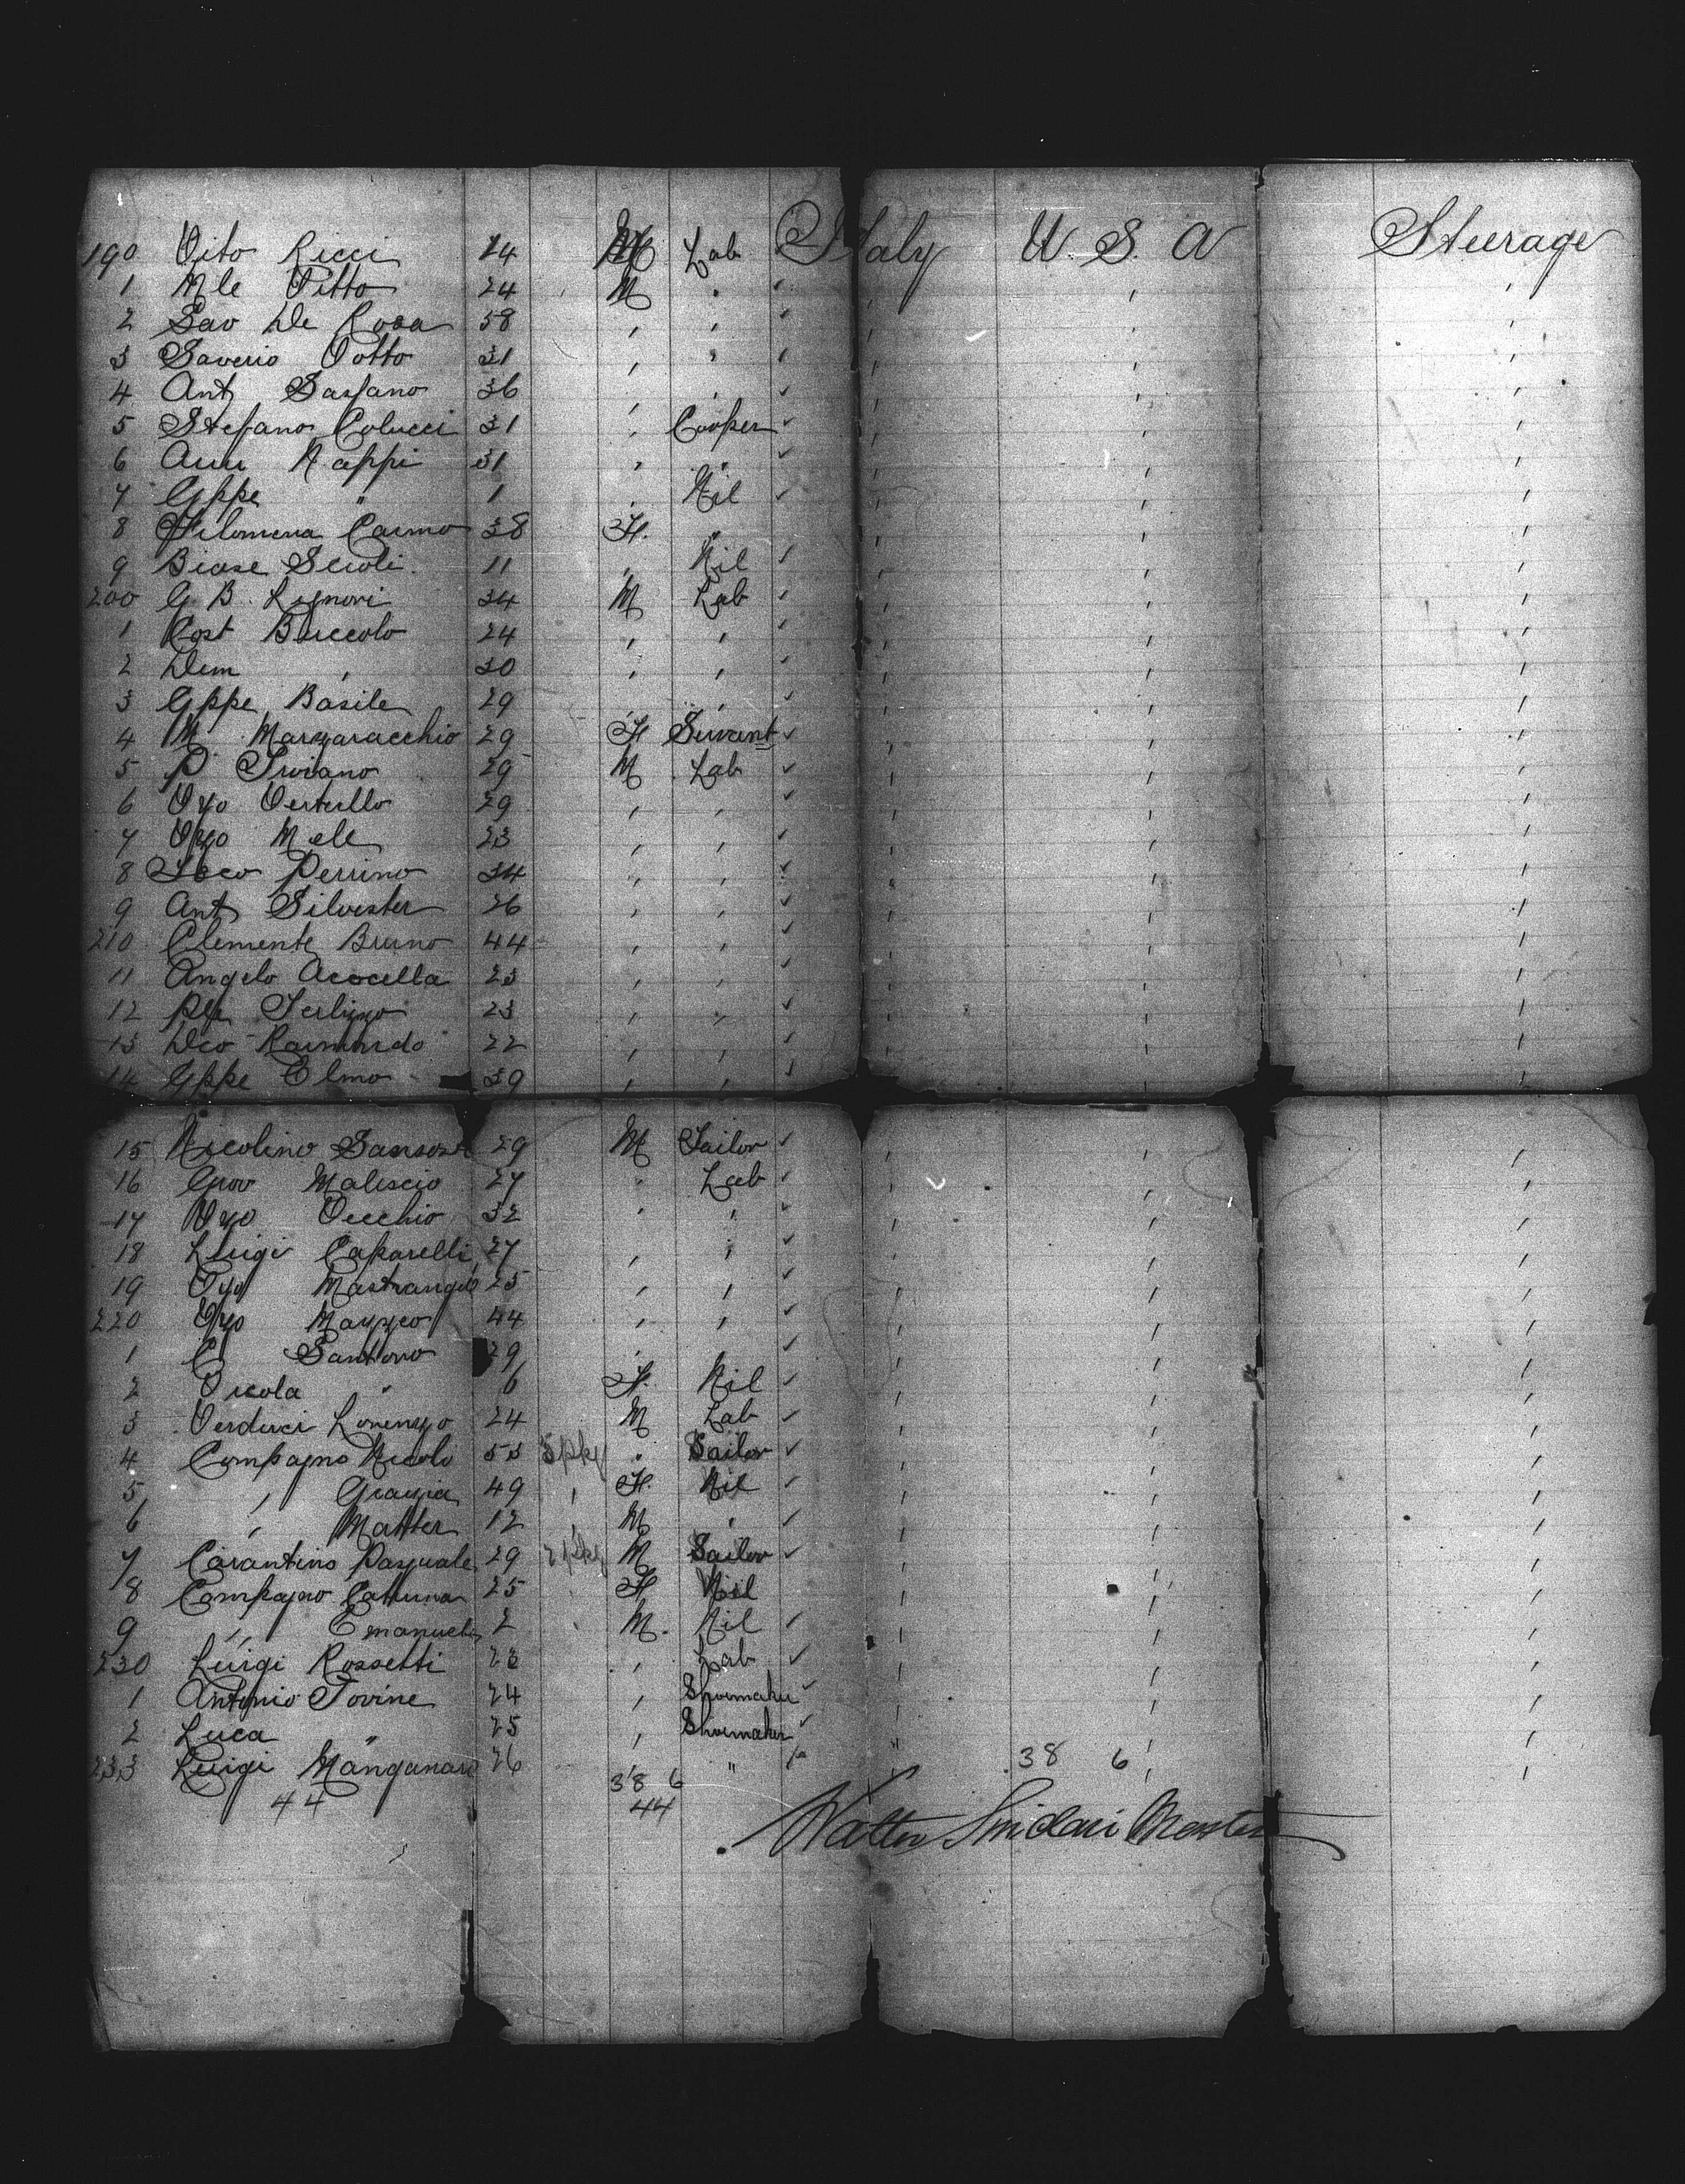 190 Vito Ricci 24 M Lab Italy U. S. A Steerage
1 Mle Pitto 24 M " " " "
2 Sav De Rosa 58 " " " " "
3 Saverio Votto 31 " " " " "
4 Ant Sassano 36 " " " " "
5 Stefano Colucci 31 " Cooper " " "
6 Nappi 31 " " " " "
7 Gppe " 1 " Nil " " "
8 Filomena Carmo 38 F. " " " "
9 Biase 11 " Nil " " "
200 G. B. Lignori 34 M Lab " " "
1 Cost Buccolo 24 " " " " "
2 Dem " 30 " " " " "
3 Gppe Basile 29 " " " " "
4 M Marzaracchio 29 F Servant " " "
5 P Troiano 29 M Lab " " "
6 Vzo Vertullo 29 " " " " "
7 Vzo Mele 23 " " " " "
8 Perrino 34 " " " " "
9 Ant Silvester 26 " " " " "
210 Clemente Bruno 44 " " " " "
11 Angelo Acocella 23 " " " " "
12 23 " " " " "
13 Dco Raimondo 22 " " " " "
14 Gppe Elmo 39 " " " " "
15 Nicolino 29 M Tailor " " "
16 Giov Maliscio 27 " Lab " " "
17 Vzo Vecchio 32 " " " " "
18 Luigi Caparelli 27 " " " " "
19 Vzo Mastrangelo 25 " " " " "
220 Vzo Mazzeo 44 " " " " "
1 C Santoro 29 " " " " "
2 " 6 F. Nil " " "
3 Verduci Lorenzo 24 M Lab " " "
4 Compagno Nicolo 55 3 pkg " Sailor " " "
5 " Grazia 49 " F. Nil " " "
6 " Matter 12 M " " " "
7 Carantino Pasquale 29 2 pkg M Sailor " " "
8 Compagno Catterina 25 F Nil " " "
9 " Emanuele 2 M. Nil " " "
230 Luigi Rossetti 23 " Lab " " "
1 Antonio Iovine 24 " Shoemaker " " "
2 Luca " 25 " Shoemaker " " "
233 Luigi Manganaro 26 " " 38 6 " "
44 38 6
44
Walter Sinclair Master